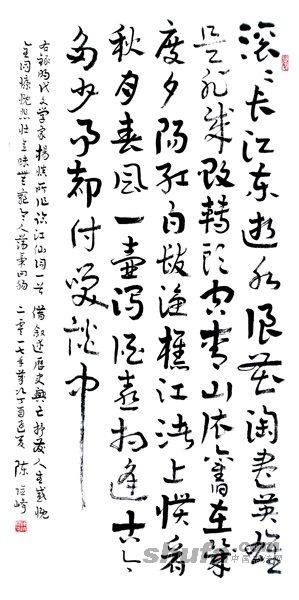 滚々长江东逝水浪花淘尽英雄
是非成败转头空青山依旧在几
度夕阳红白发渔樵江渚上惯看
秋月春风一壶浊酒喜相逢古今
多少事都付笑谈中
右录明代文学家杨慎所作临江仙词一首 借叙述历史兴亡抒发人生感慨
全词慷慨悲壮意味无穷令人荡气回肠 二零一七年岁次丁酉之夏 陈